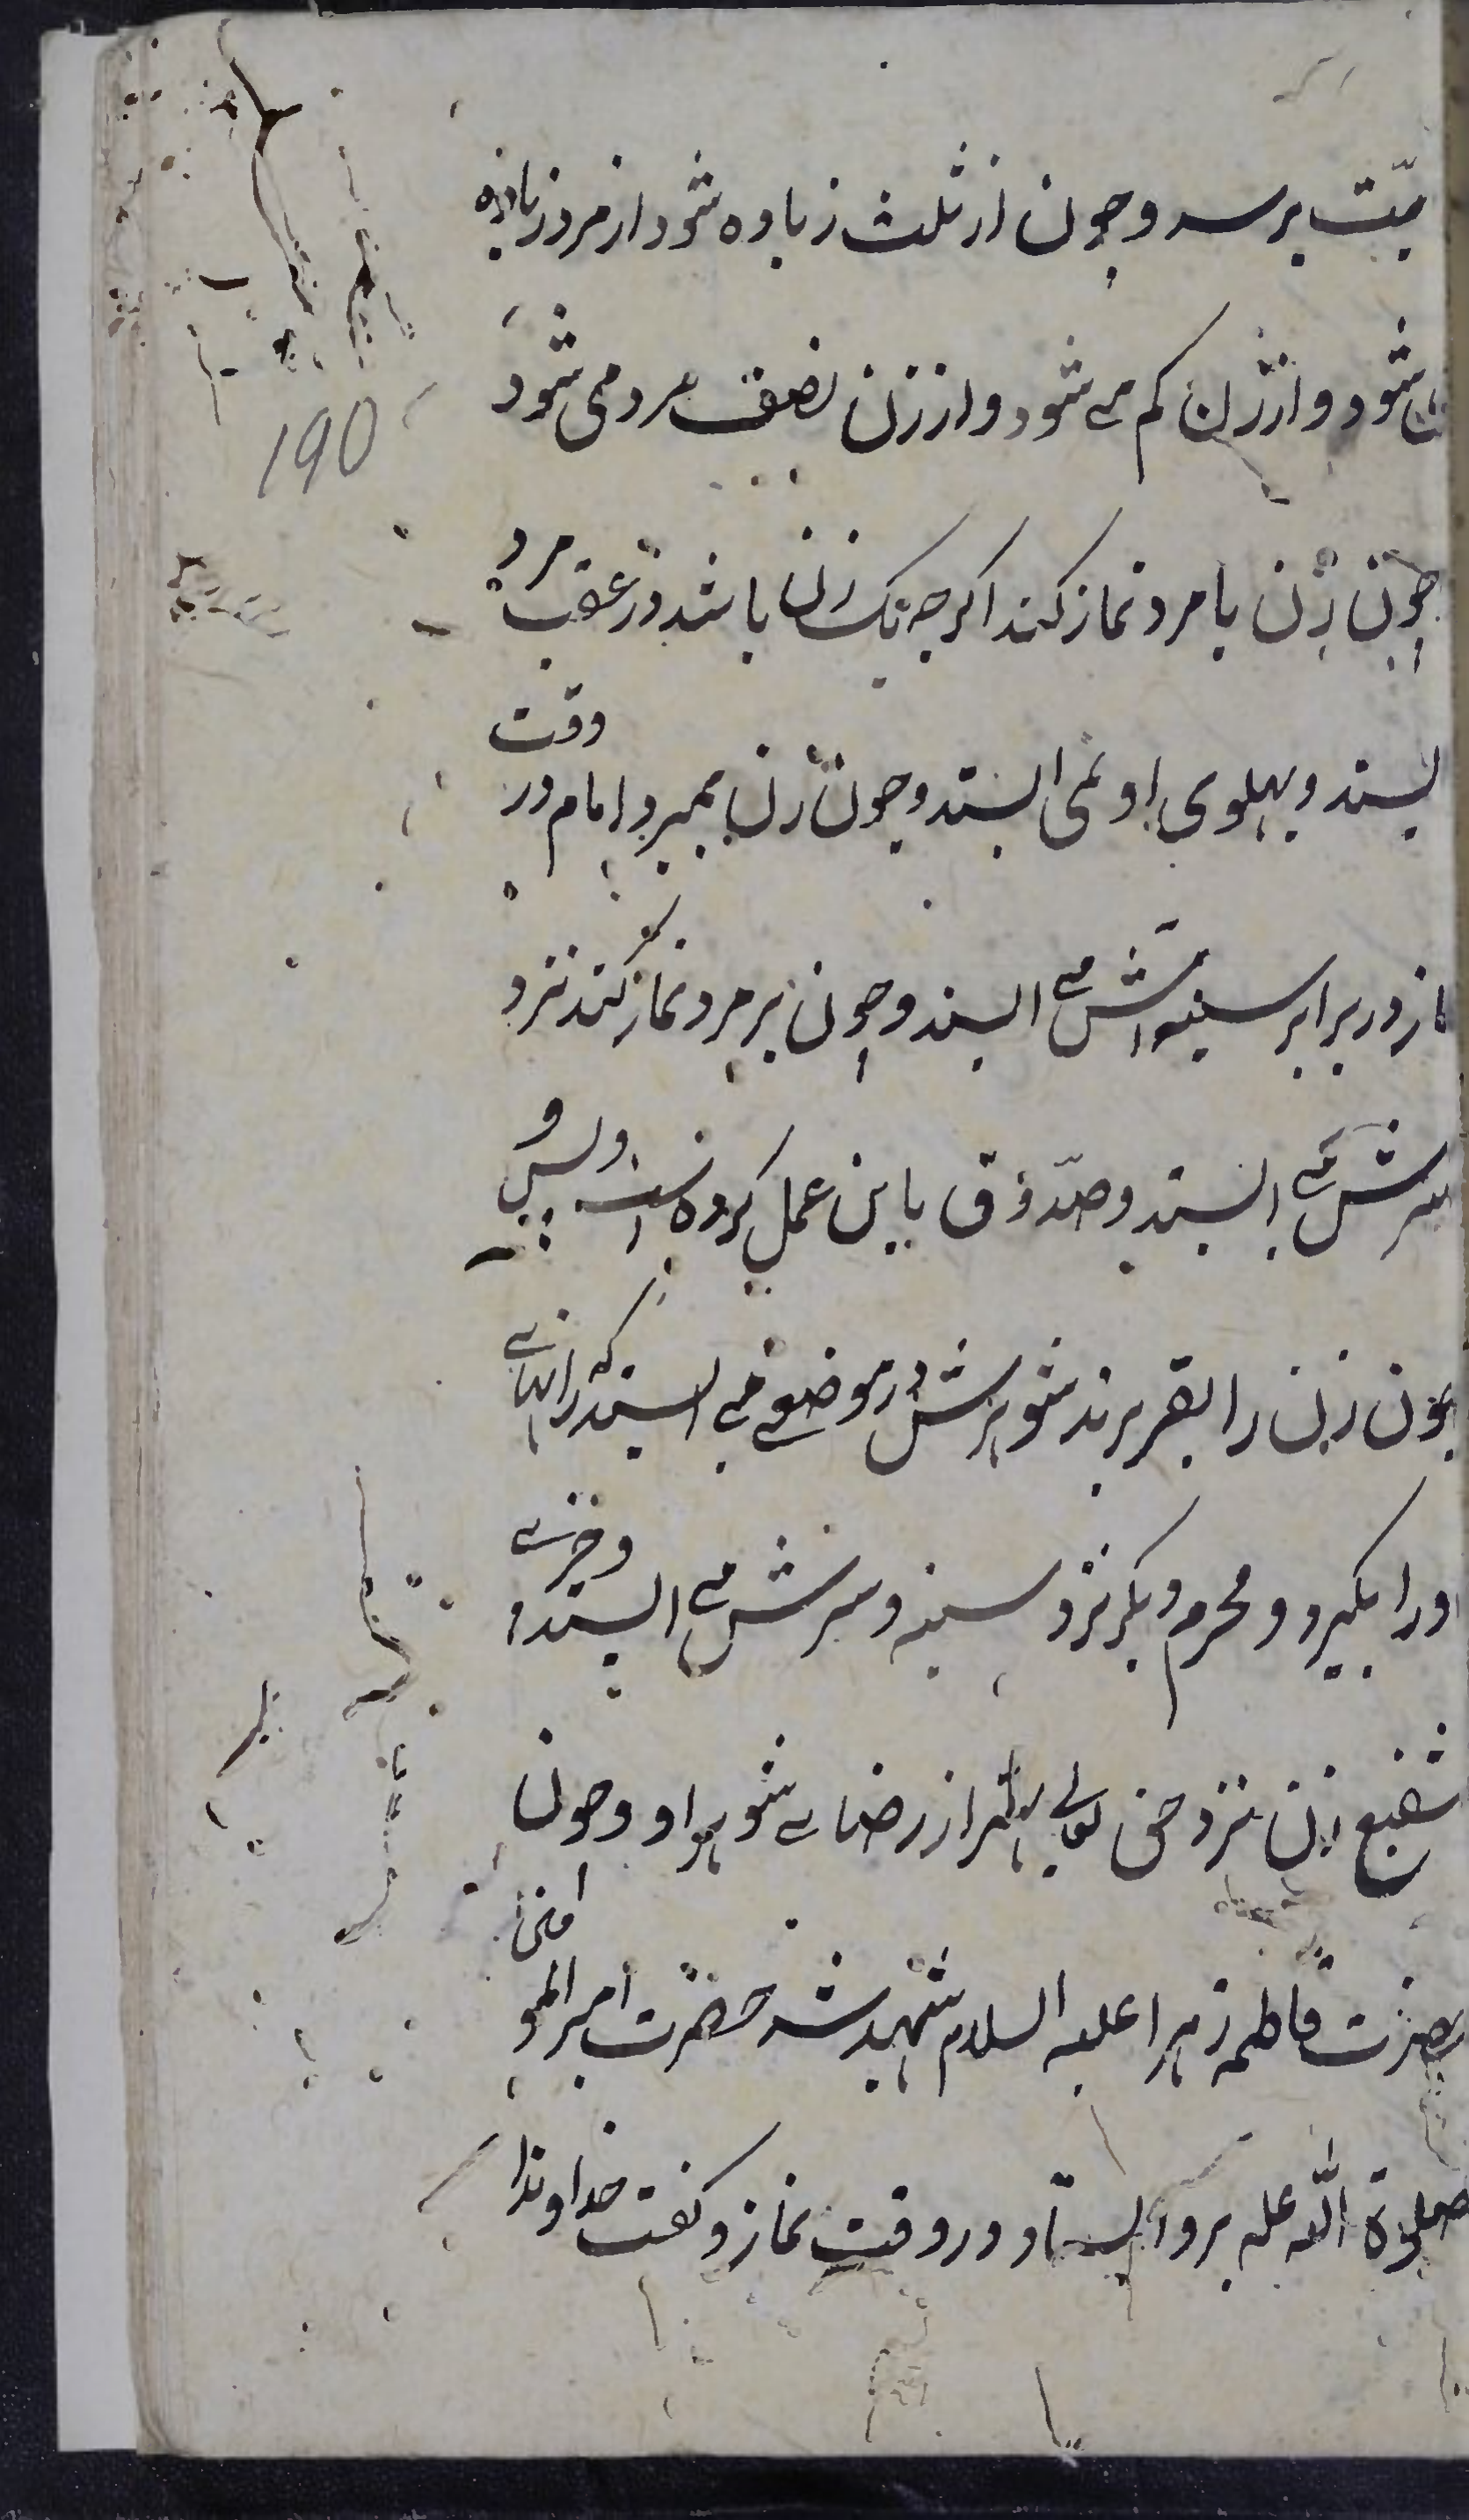 میّت برسد و چون از ثلث زیاده شود از مرد زیاده
می شود و از زن کم می شود و از زن نصف مرد می شود
190
چون زن با مرد نماز کند اکرچه یک زن باشد در عقب مرد
ایستد و پهلوی او نمی ایستد و چون زن بمیرد امام در وقت
نماز در برابر سینه اش می ایستد و چون بر مرد نماز کند نزد
سرش می ایستد و صدّوق باین عمل کرده است و بس و
چون زن را بقبر برند شوهرش در موضعی می ایستد که رانهای
او را بکیرد و محرم دیکر نزد سینه و سرش می ایستد و
شفیع زن نزد حق تعالی بهتر از رضای شوهر او و چون
حضرت فاطمه زهرا علیه السلام شهید شد حضرت امیر المومنین
صلوة الله علیه برو ایستاد در وقت نماز و کفت خداوندا